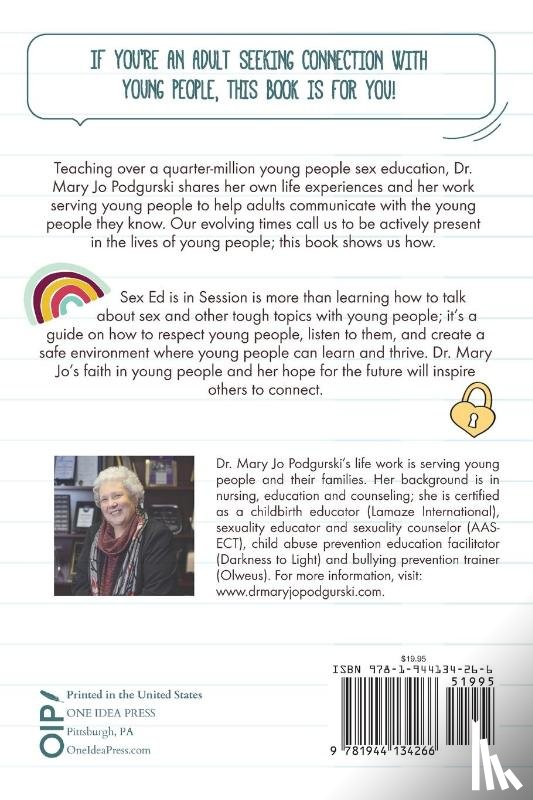 IF YOU'RE AN ADULT SEEKING CONNECTION WITH
YOUNG PEOPLE, THIS BOOK IS FOR YOU!
Teaching over a quarter-million young people sex education, Dr.
Mary Jo Podgurski shares her own life experiences and her work
serving young people to help adults communicate with the young
people they know. Our evolving times call us to be actively present
in the lives of young people; this book shows us how.
Sex Ed is in Session is more than learning how to talk
about sex and other tough topics with young people; it's a
guide on how to respect young people, listen to them, and create a
safe environment where young people can learn and thrive. Dr. Mary
Jo's faith in young people and her hope for the future will inspire
others to connect.
Dr. Mary Jo Podgurski's life work is serving young
people and their families. Her background is in
nursing, education and counseling; she is certified
as a childbirth educator (Lamaze International),
sexuality educator and sexuality counselor (AAS-
ECT), child abuse prevention education facilitator
(Darkness to Light) and bullying prevention trainer
(Olweus). For more information, visit:
www.drmaryjopodgurski.com.
OIP
Printed in the United States
ONE IDEA PRESS
Pittsburgh, PA
OneIdeaPress.com
$19.95
ISBN 978-1-944134-26-6
51995
9 781944 134266